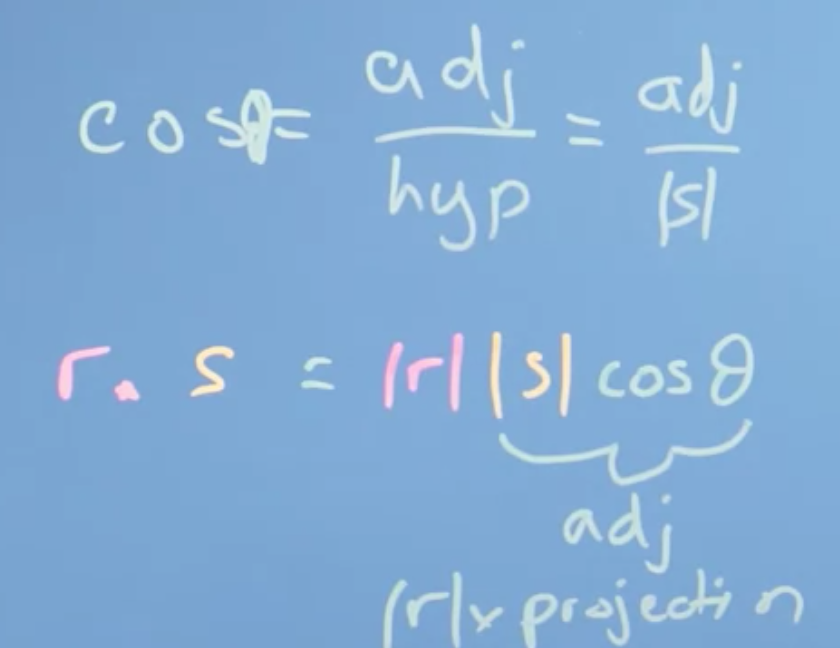 cosθ = adj/hyp = adj/|s|
r. s = |r| |s| cos θ
adj
|r| x projection